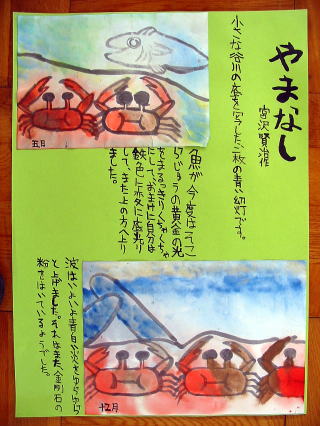 やまなし
宮沢賢治作
小さな谷川の底を写した二枚の青い幻灯です。
五月
魚が今度はそこ
らじゅうの黄金の光
をまるっきりくちゃくちゃ
にしておまけに自分は
鉄色に変に底光り
して、また上の方へ上り
ました。
波はいよいよ青白い炎をゆらゆら
と上げました。それはまた金剛石の
粉をはいているようでした。
十二月